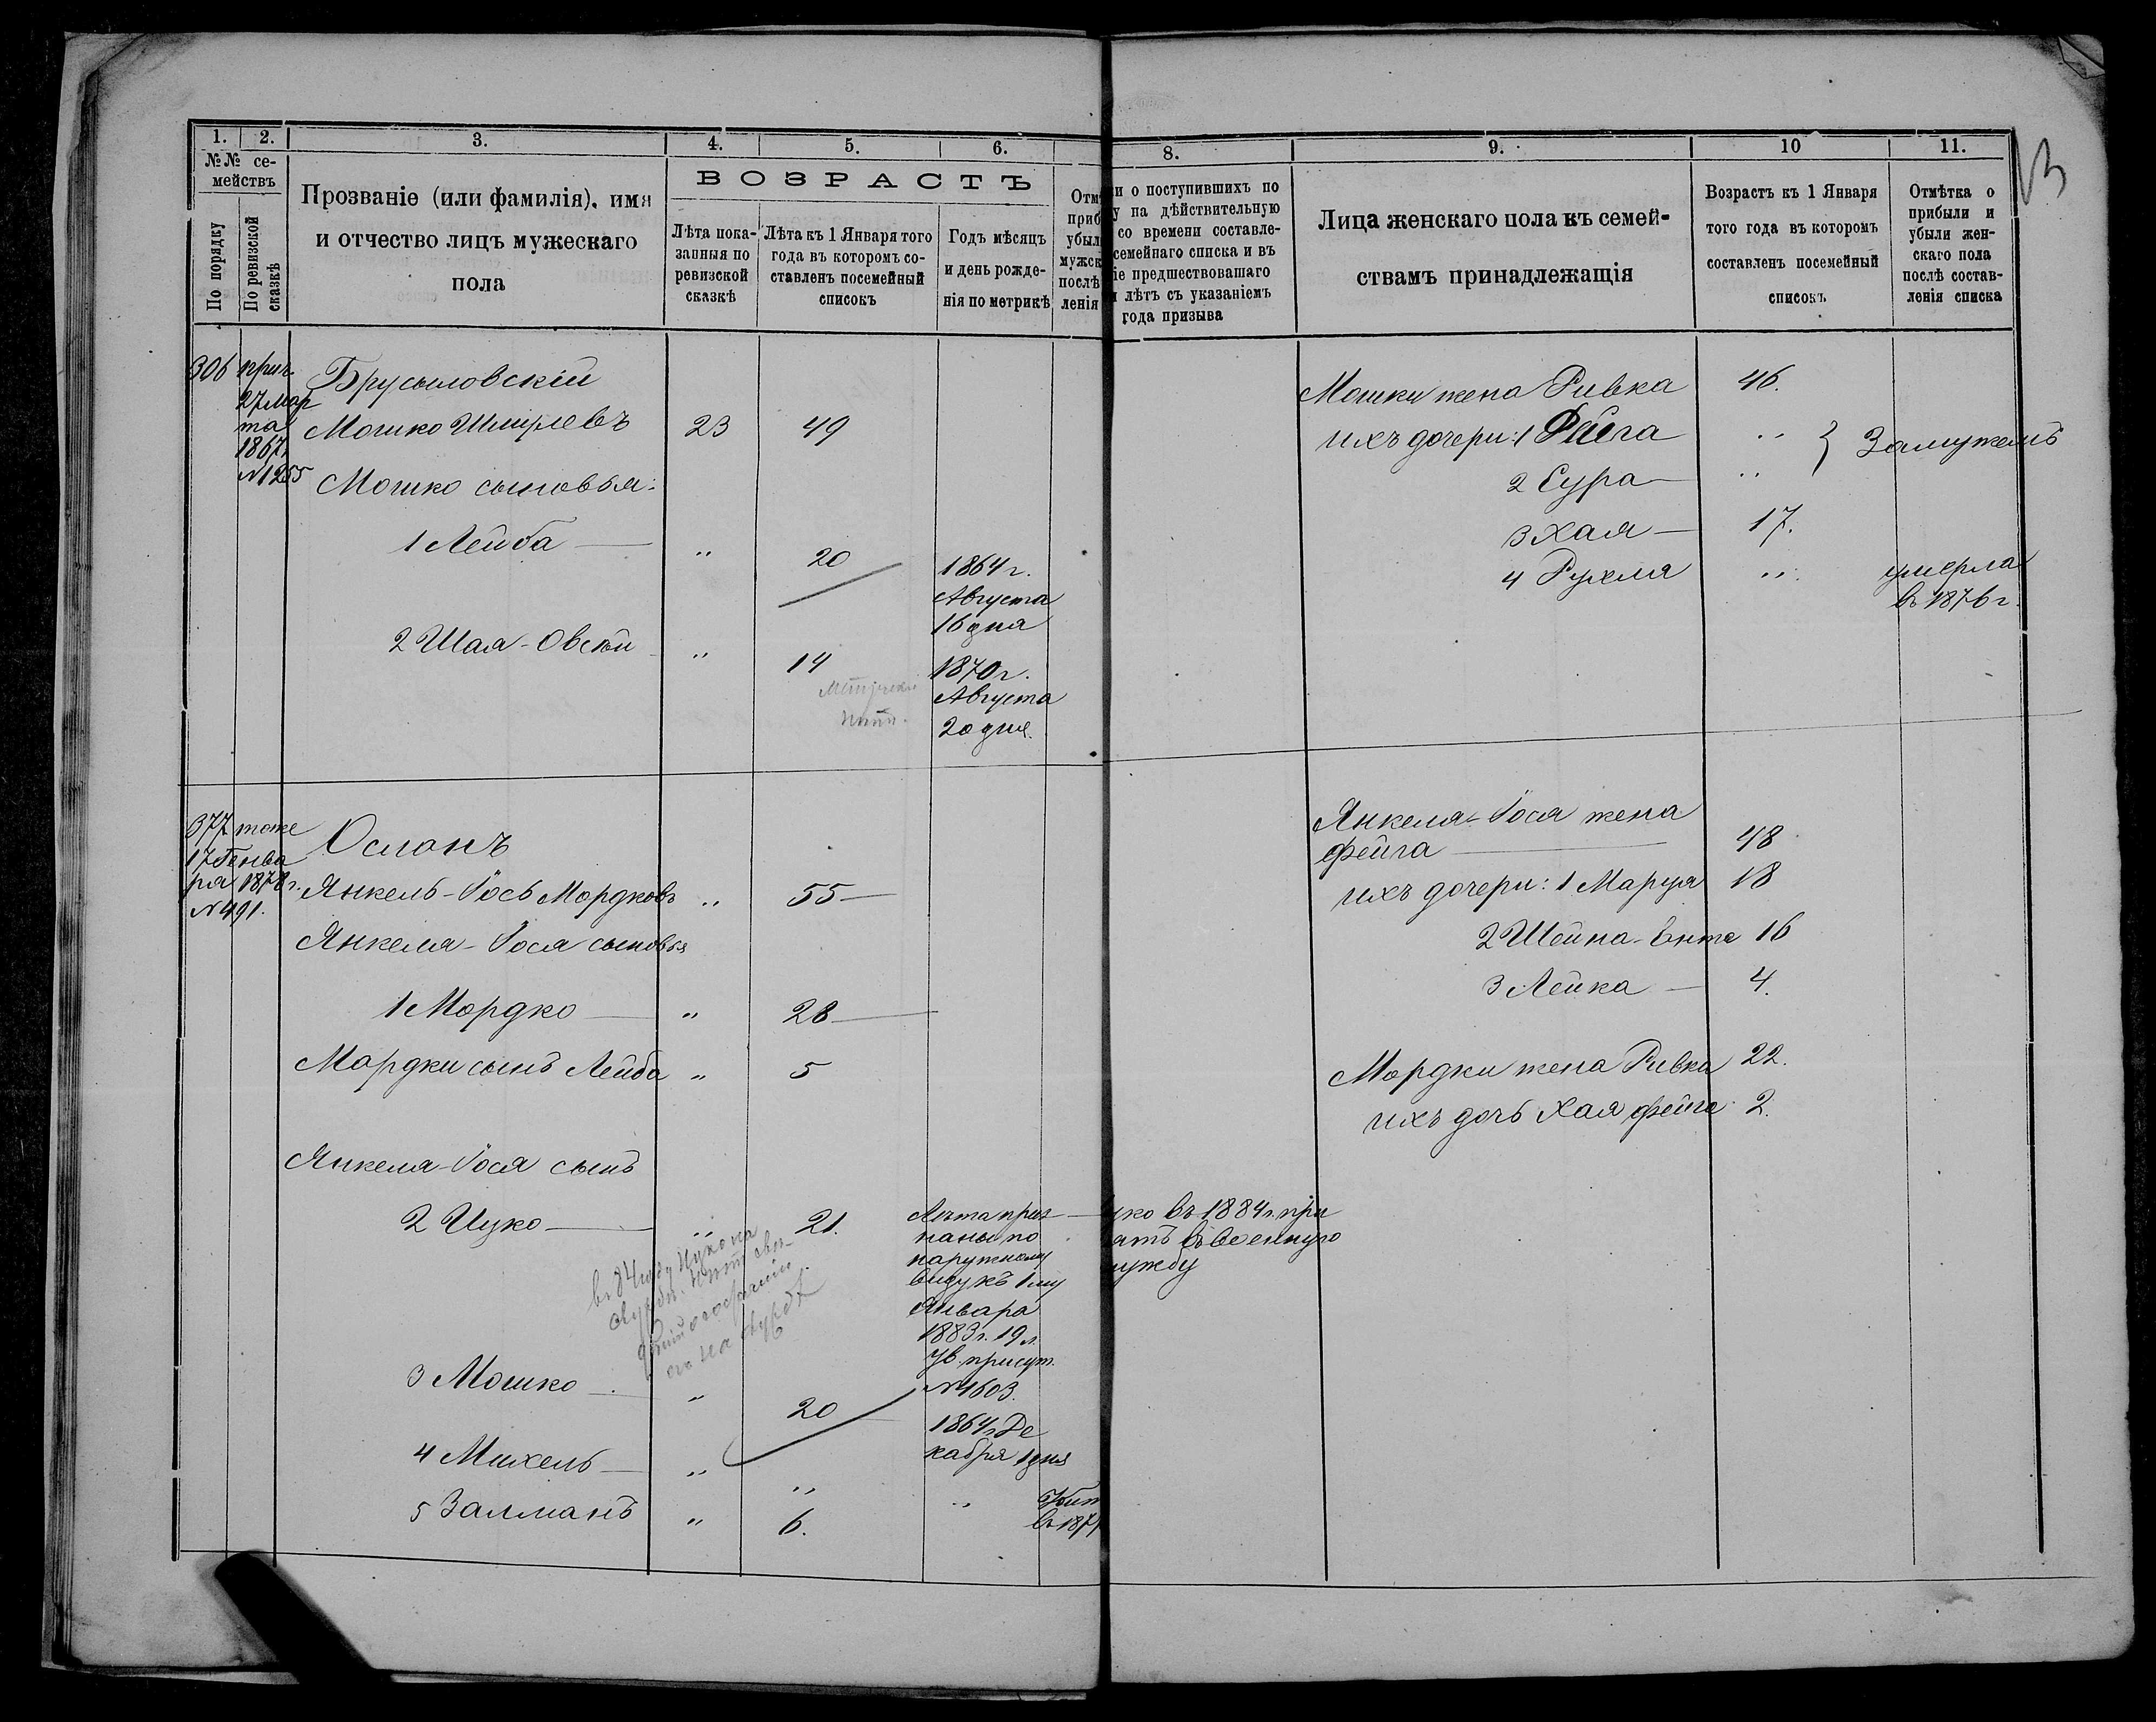 13
1.
2.
3.
4.
5.
6.
8.
9.
10
11.
№№ се-
мействъ
По порядку
По ревизской
сказкѣ
Прозваніе (или фамилія), имя
и отчество лицъ мужескаго
пола
ВОЗРАСТЪ
Лѣта пока-
занныя по
ревизской
сказкѣ
Лѣта къ 1 Января того
года въ которомъ со-
ставленъ посемейный
списокъ
Годъ мѣсяцъ
и день рожде-
нія по метрикѣ
Отм
приб
убыл
мужск
послѣ
ленія
и о поступившихъ по
у на дѣйствительную
со времени составле-
семейнаго списка и въ
іе предшествовашаго
лѣтъ съ указаніемъ
года призыва
Лица женскаго пола къ семей-
ствамъ принадлежащія
Возрастъ къ 1 Января
того года въ которомъ
составленъ посемейный
списокъ
Отмѣтка о
прибыли и
убыли жен-
скаго пола
послѣ состав-
ленія списка
306 прич.
27 мар
та
1867
№ 1255
Брусиловскій
Мошко Шмулевъ 23 49
Мошко сыновья:
1 Лейба — „ 20
1864 г.
Августа
16 дня
2 Шая-Овсѣй „ 14
1870 г.
Августа
20 дня.
Мошки жена Ривка 46.
ихъ дочери: 1 Фейга „ } Замужемъ
2 Сура — „
3 Хая — 17.
4 Рухля „ умерла
въ 1876 г.
377 тоже
17 Генва
ря 1878 г.
№ 491.
Осланъ
Янкель-Іось Мордковъ „ 55 —
Янкеля-Іося сыновья
1 Мордко — „ 28 —
Мордки сынъ Лейба „ 5
Янкеля-Іося сынъ
2 Ицко — „ 21.
Лѣта приз-
наны по
наружному
виду къ 1му
Января
1883 г. 19 л.
ув. присут.
№ 1603.
цко въ 1884 г. при
ятъ въ военную
ужбу
въ 84 году Ицко на
3 Мошко — „ 20
1864 г. Де
кабря 1 дня
4 Михель — „ „ „
въ 187
5 Залманъ „ 6.
Янкеля-Іося жена
Фейга — 48
ихъ дочери: 1 Маруя 18
2 Шейна-Ента 16
3 Лейка — 4.
Мордки жена Ривка 22.
ихъ дочь Хая Фейга 2.